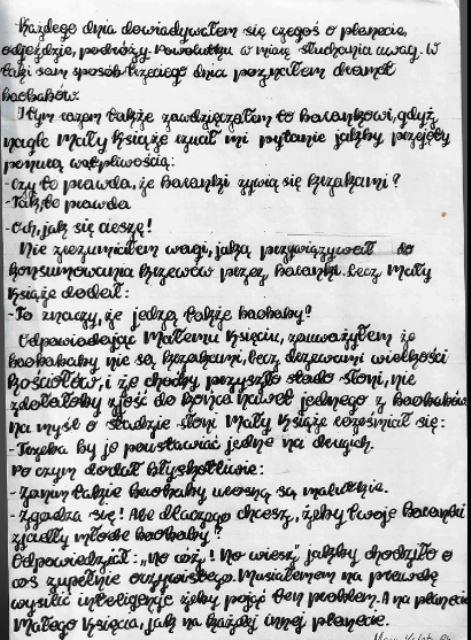 Każdego dnia dowiadywałem się czegoś o planecie,
odjeździe, podróży. Powolutku w miarę słuchania uwag. W
taki sam sposób trzeciego dnia poznałem dramat
baobabów.
I tym razem także zawdzięczałem to barankowi, gdyż
nagle Mały Książe zadał mi pytanie jakby przejęty
ponurą wątpliwością:
-Czy to prawda, że baranki żywią się krzakami?
-Tak, to prawda
-Och, jak się cieszę!
Nie zrozumiałem wagi, jaką przywiązywał do
konsumowania krzewów przez baranki. Lecz Mały
Książe dodał:
-To znaczy, że jedzą także baobaby?
Odpowiadając Małemu Księciu, zauważyłem że
baobababy nie są krzakami, lecz drzewami wielkości
kościołów, i że choćby przyszło stado słoni, nie
zdołałoby zjeść do końca nawet jednego z baobabów
Na myśl o stadzie słoni Mały Książe roześmiał się:
-Trzeba by je poustawiać jedne na drugich.
Po czym dodał błyskotliwie:
-Zanim takie baobaby urosną są malutkie.
-Zgadza się! Ale dlaczego chcesz, żeby twoje baranki
zjadły młode baobaby?
Odpowiedział: „No cóż! No wiesz" jakby chodziło o
coś zupełnie oczywistego. Musiałemem na prawdę
wysilić inteligencję żeby pojąć ten problem. A na planecie
Małego Księcia, jak na każdej innej planecie.